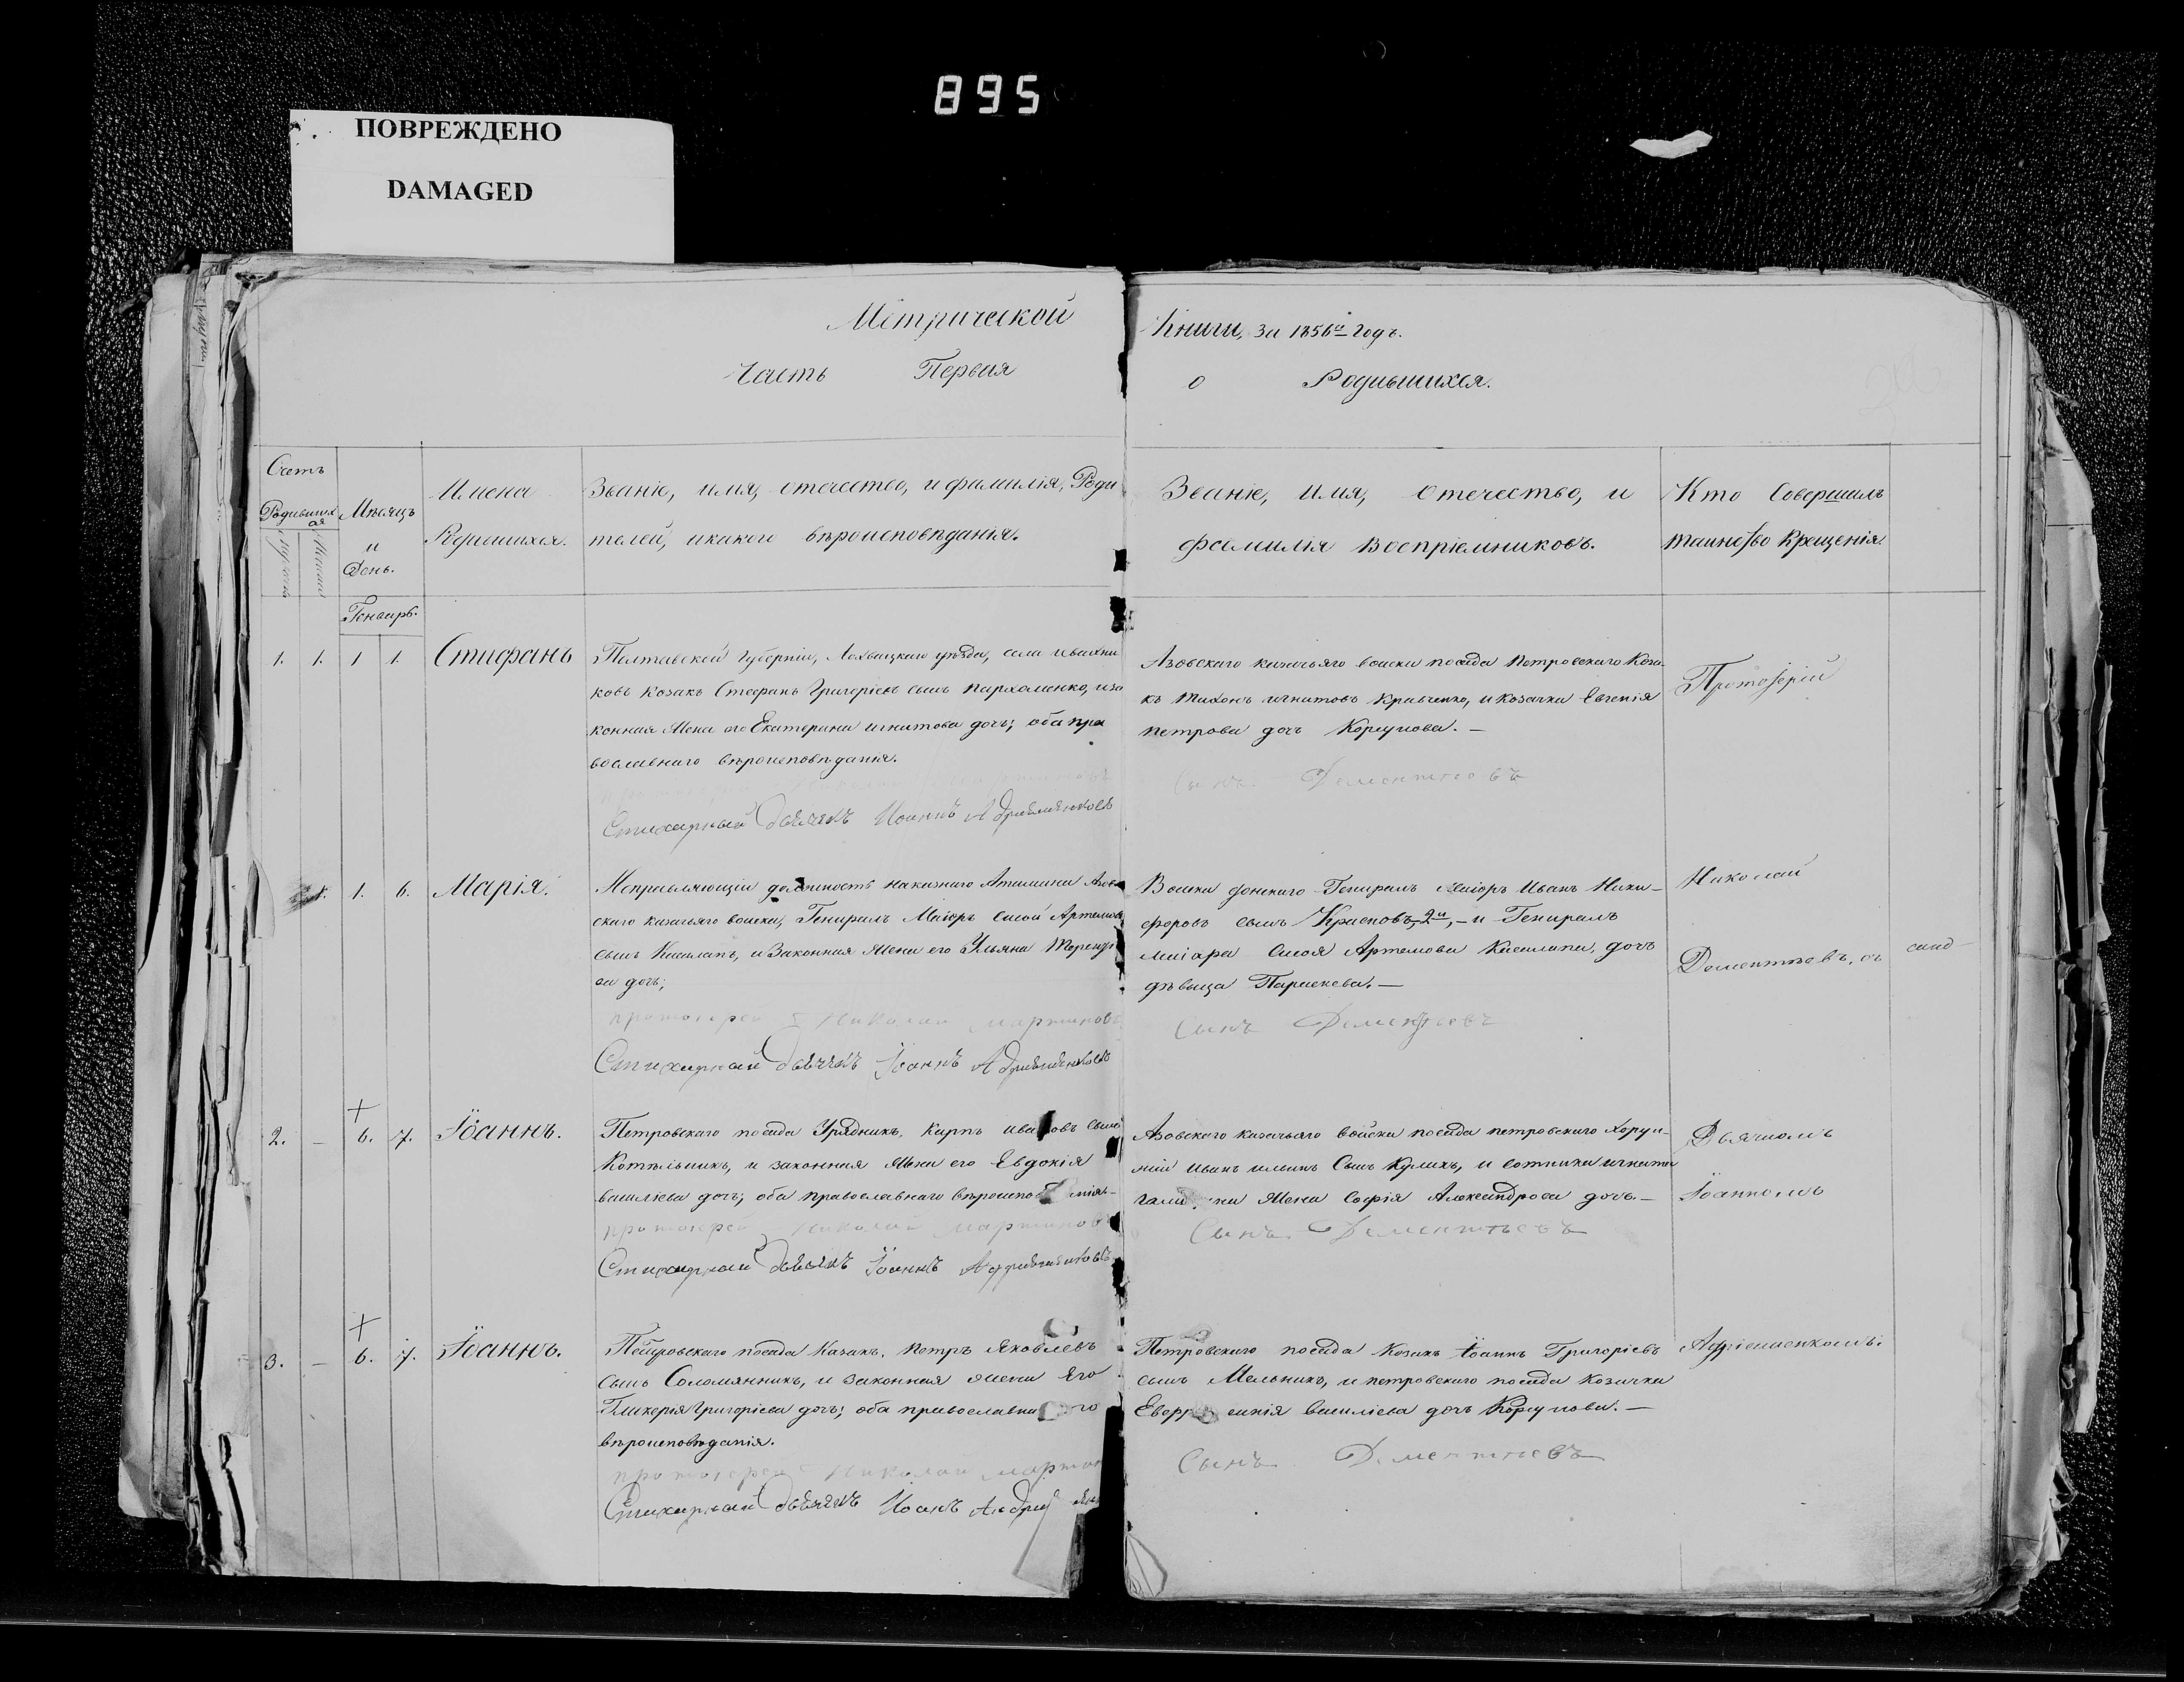 895
ПОВРЕЖДЕНО
DAMAGED
Метрической Книги, за 1856й годъ.
Часть Первая о Родившихся.
Счетъ
Родивших
ся
Мѣсяцъ
и
День.
Имена
Родившихся.
Званіе, имя, отечество, и фамилія, Роди
телей, и какого вѣроисповѣданія.
Званіе, имя, отечество, и
фамилія Воспріемниковъ.
Кто Совершилъ
таинство Крещенія.
Генварь.
1. 1. 1 1. Стефанъ
Полтавской губерніи, Лохвицкаго уѣзда, села
ковъ козакъ Стефанъ Григоріевъ сынъ Пархоменко, и за
конная жена его Екатерина Игнатова дочь; оба пра
вославнаго вѣроисповѣданія.
Стихарный Дьячекъ Иоаннъ
Азовскаго казачьяго войска посада Петровскаго Коза
къ Тихонъ Игнатовъ Кравченко, и козачка Евгенія
петрова дочь Корсунова. —
Сынъ Дементіевъ
Протоіерій
1. 1. 6. Марія.
Исправляющій должность наказнаго Атамана Азов
скаго казачьяго войска, Генералъ Маіоръ Сысой Артемовъ
сынъ Касалапъ, и Законная жена его Ульяна
ва дочь;
протоіерей Николай Мартинов
Стихарный Дьячекъ Іоаннъ
Войска донскаго Генералъ Маіоръ Иванъ Ники-
форовъ сынъ Красновъ 2й, — и Генералъ
маіора Сысоя Артемова Касалапа, дочь
дѣвица Параскева. —
Сынъ Дементьевъ
Николай
Дементіевъ, съ
2. — 6. 7. Іоаннъ.
Петровскаго посада Урядникъ, Карпъ Ивановъ сынъ
Котѣльникъ, и законная жена его Евдокія
василіева дочь; оба православнаго
протоіерей Николай Мартинов
Стихарный Дьячекъ Іоаннъ
Азовскаго казачьяго войска посада петровскаго Хорун-
жій Иванъ Сынъ Куликъ, и сотника игната
жена Софія Александрова дочь. —
Сынъ Дементьевъ
Дьячкомъ
Іоанномъ
3. — 6. 7. Іоаннъ.
Петровскаго посада Казакъ, Петръ Яковлевъ
сынъ Соломянникъ, и законная жена Его
Гликерія Григоріева дочь; оба православнаго
вѣроисповѣданія.
протоіерей Николай
Стихарный Дьячекъ Иоанъ
Петровскаго посада Козакъ Іоаннъ Григоріевъ
сынъ Мельникъ, и петровскаго посада Козачка
василіева дочь Корсунова. —
Сынъ Дементіевъ